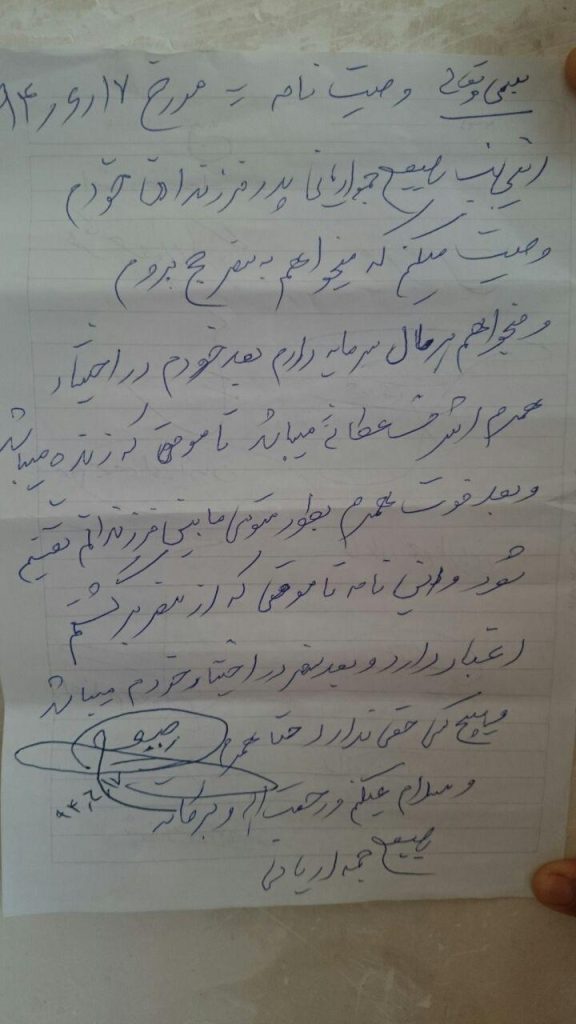 بسمی وتعالی وصیت نامه به مورخ ۱۷ر۶ر۹۴
اینجانب رصیع پدر فرزندان خودم
وصیت میکنم که میخواهم به سفر حج بروم
و میخواهم هر مال سرمایه دارم بعد خودم در اختیار
همسرم اشرف عطائی میباشد تا موقعی که زنده میباشد
و بعد فوت همسرم بطور متوسی مابین فرزندانم تقسیم
شود و این نامه تا موقعی که از سفر برگشتم
اعتبار دارد و بعد سفر در اختیار خودم میباشد
هیچ کس حقی ندارد حتا همسرم
و سلام علیکم و رحمت الله و برکاته
رصیع